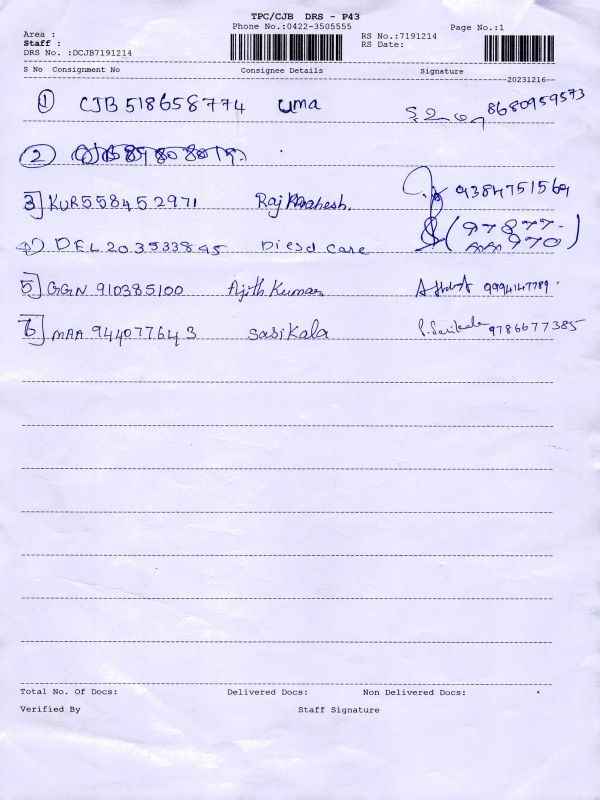 TPC/CJB DRS - P43
Phone No.:0422-3505555 Page No.:1
Area :
Staff :
RS No.:7191214
RS Date:
DRS No. :DCJB7191214
S No Consignment No Consignee Details Signature
20231216
① CJB 518658774 uma 8680959573
②
3] KUR558452971 Raj Mahesh. 9384751569
4) DEL 203533845 Diesel care (97877-
970)
5] GGN 910385100 Ajith Kumar 9994147789
6] MAA 944077643 Sasikala P. Sasikala 9786677385
Total No. Of Docs: Delivered Docs: Non Delivered Docs:
Verified By Staff Signature